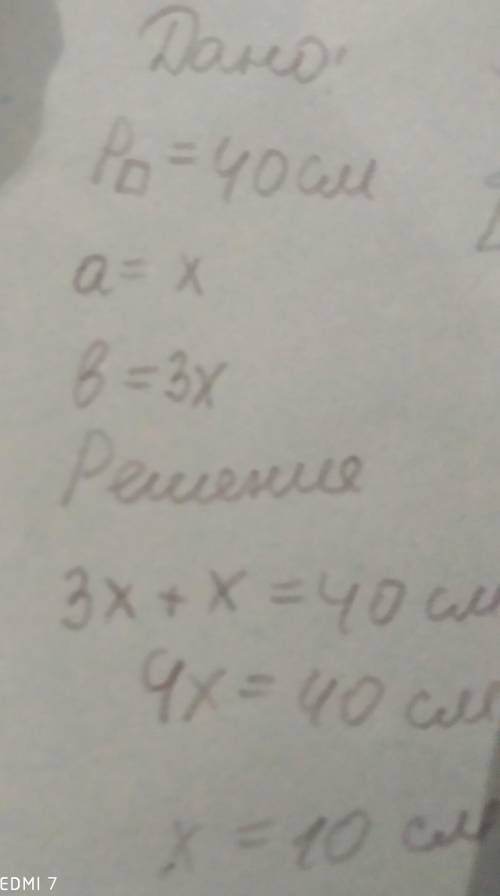 Дано:
P□ = 40 см
a = x
в = 3x
Решение
3x + x = 40 см
4x = 40 см
x = 10 см
EDMI 7